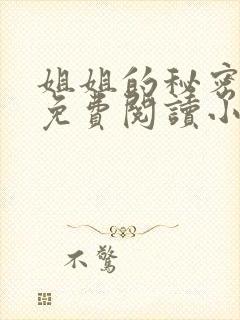 姐姐的秘密
免費閱讀小
不驚